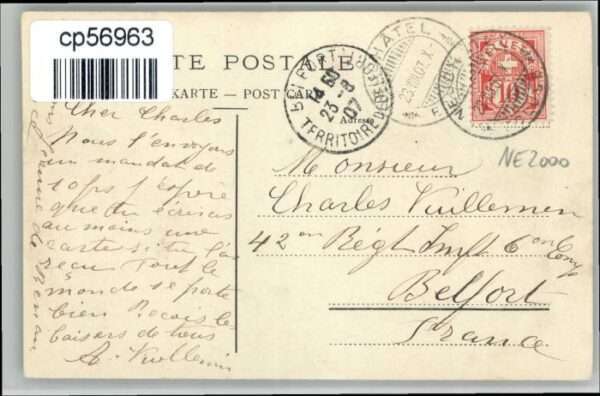 cp56963
TE POSTALE
KARTE - POST CARD
Adresse
BELFORT
23 -8
07
TERRITOIRE DE BELFORT
NEUCHÂTEL
23.VIII.07. X
HELVETIA
10
NE2000
Cher Charles
Nous t'envoyons
un mandat de
10 frs J'espère
que tu écriras
au moins une
carte si tu l'as
reçu Tout le
monde se porte
bien Reçois les
baisers de tous
A. Vuillemin
Monsieur
Charles Vuillemin
42 em Régt Inft 6 em Comp
Belfort
France